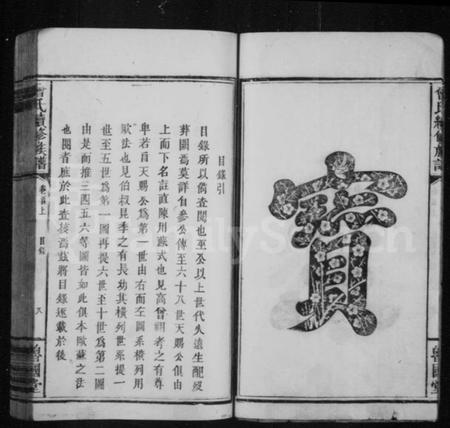 寶
魯國堂
曾氏續修族譜
目錄引
目錄所以備查閱也至公以上世代久遠生配經
葬圖為莫詳自參公傳至六十八世天賜公俱由
上而下名註直陳用蘇式也見高曾祖考之有尊
卑若自天賜公為第一世由右而左圖系橫列用
歐法也見伯叔昆季之有長幼其橫列世系提一
世至五世為第一圖再提六世至十世為第二圖
由是而推三四五六等圖皆如此俱本歐蘇之法
也閱者應於此查後為茲將目錄逐載於後
曾氏續修族譜
卷首上
目錄
魯國堂
FamilySearch